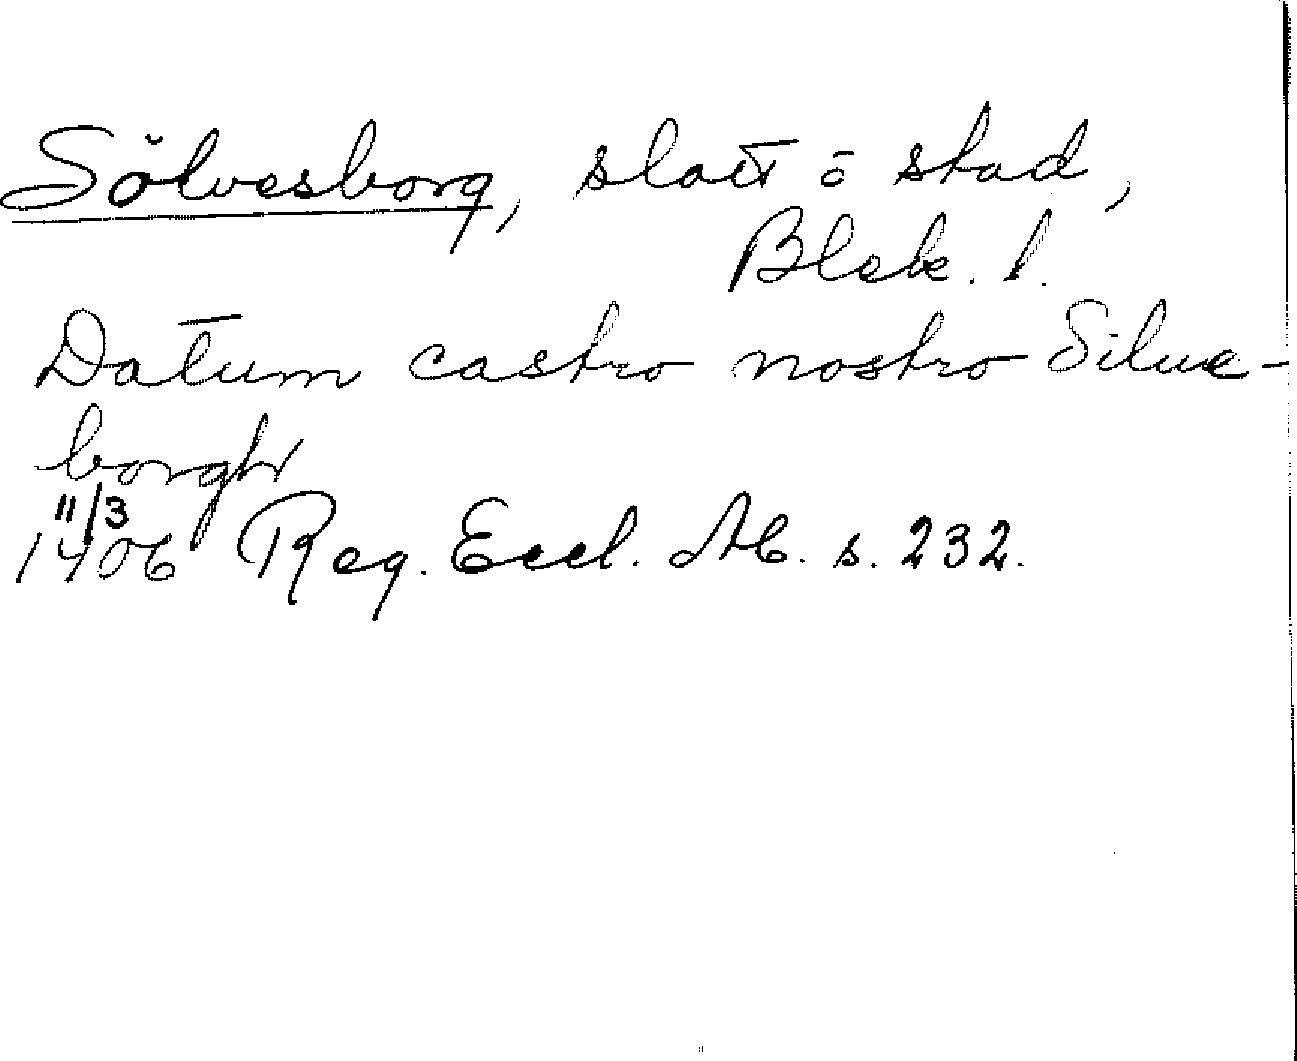 Sölvesborg, slott o stad,
Blek. l.
Datum castro nostro Silue-
borgh
11/3
1406 Reg. Eccl. Ab. s. 232.